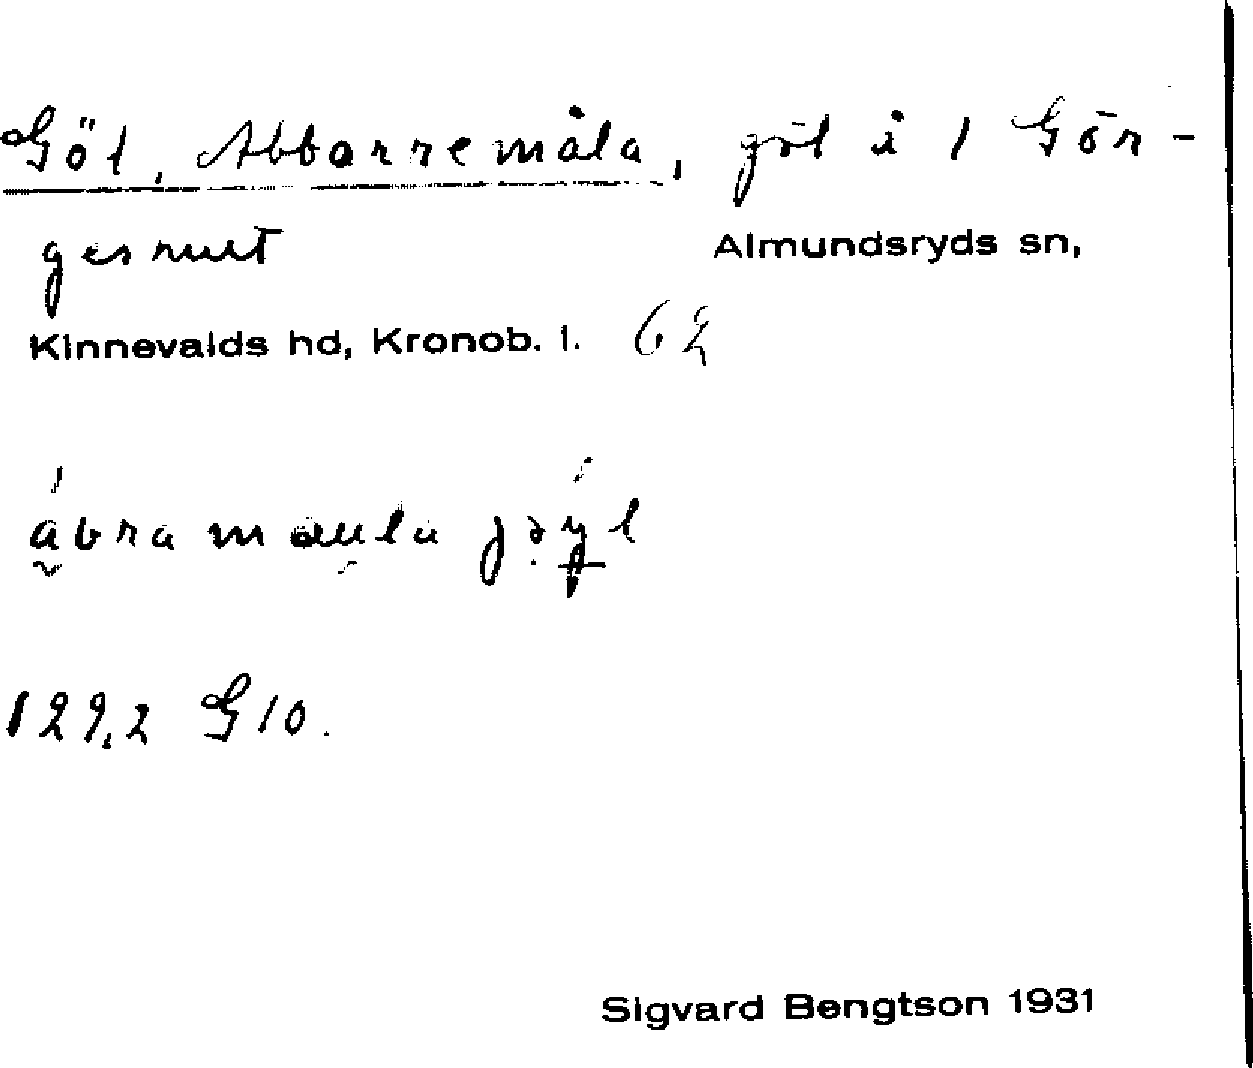 Göl, Abborremåla, göl i 1 Gör-
gesrult Almundsryds sn,
Kinnevalds hd, Kronob. l. 62
abramaula
122,2 G10.
Sigvard Bengtson 1931